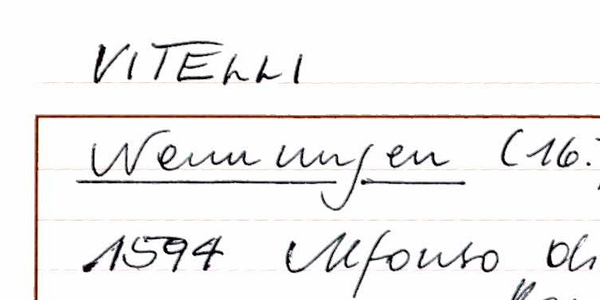 VITELLI
Nennungen (16.
1594 Alfonso